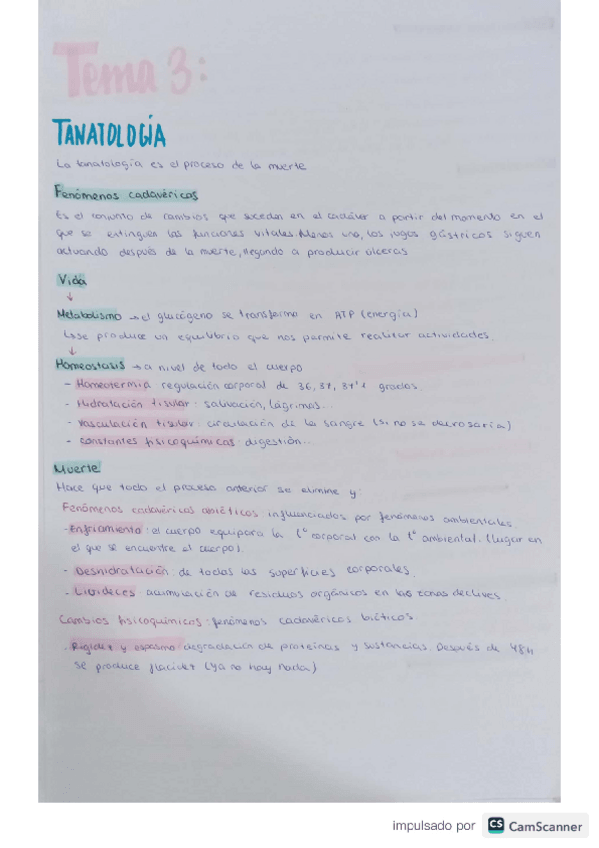 Tema 3:
TANATOLOGÍA
La tanatología es el proceso de la muerte
Fenómenos cadavéricos
Es el conjunto de cambios que suceden en el cadáver a partir del momento en el
que se extinguen las funciones vitales. Menos uno, los jugos gástricos siguen
actuando después de la muerte, llegando a producir úlceras
Vida
↓
Metabolismo → el glucógeno se transforma en ATP (energía)
↳ se produce un equilibrio que nos permite realizar actividades.
↓
Homeostasis → a nivel de todo el cuerpo
- Homeotermia regulación corporal de 36, 37, 37'1 grados.
- Hidratación tisular: salivación, lágrimas...
- Vasculación tisular: circulación de la sangre (si no se necrosaría)
- Constantes fisicoquímicas: digestión...
Muerte
Hace que todo el proceso anterior se elimine y:
Fenómenos cadavéricos abióticos influenciados por fenómenos ambientales
- Enfriamiento: el cuerpo equipara la tº corporal con la tº ambiental. (lugar en
el que se encuentre el cuerpo).
- Deshidratación: de todas las superficies corporales.
- Livideces acumulación de residuos orgánicos en las zonas declives
Cambios fisicoquímicos: fenómenos cadavéricos bióticos.
. Rigidez y espasmo degradación de proteínas y sustancias. Después de 48h
se produce flacidez (ya no hay nada)
impulsado por CS CamScanner